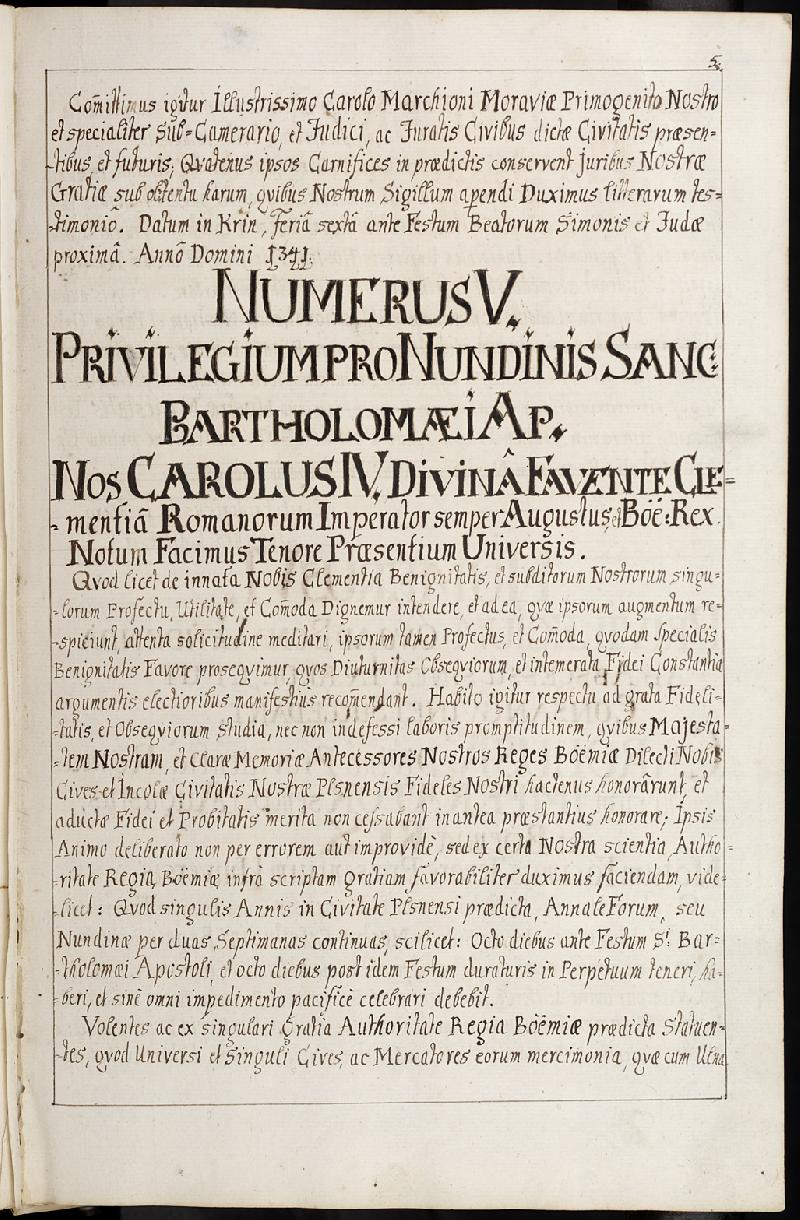 5.
Com̄ittimus igitur Illustrissimo Carolo Marchioni Moraviæ Primogenito Nostro
et specialiter Sub=Camerario, et Judici, ac Juratis Civibus dictæ Civitatis præsen=
=tibus, et futuris; Qvatenus ipsos Carnifices in prædictis conservent juribus Nostræ
Gratiæ sub obtentu harum, qvibus Nostrum Sigillum apendi Duximus litterarum tes=
=timoniô. Datum in Krin, feriâ sextâ ante Festum Beatorum Simonis et Judæ
proximâ. Annô Domini 1341.
NUMERUS V.
PRIVILEGIUM PRO NUNDINIS SANC
BARTHOLOMÆI AP.
NOS CAROLUS IV. DIVINÂ FAVENTE CLE=
=mentiâ Romanorum Imperator semper Augustus, et Böë: Rex.
Notum Facimus Tenore Præsentium Universis.
Qvod licet de innata Nobis Clementia Benignitatis, et subditorum Nostrorum singu=
=lorum Profectu, Utilitate, et Com̄oda Dignemur intendere, et ad ea, qvæ ipsorum augmentum re=
=spiciunt, attenta solicitudine meditari, ipsorum tamen Profectus, et Com̄oda, qvodam specialis
Benignitatis Favore proseqvimur, qvos Diuturnitas Obseqviorum, et intemerata Fidei Constantia
argumentis electioribus manifestius recom̄endant. Habito igitur respectu ad grata Fideli=
=tatis, et Obseqviorum studia, nec non indefessi laboris promptitudinem, qvibus Majesta=
=tem Nostram, et Claræ Memoriæ Antecessores Nostros Reges Böëmiæ Dilecti Nobis
Cives et Incolæ Civitatis Nostræ Plsnensis Fideles Nostri hactenus honorârunt, et
adactæ Fidei et Probitatis merita non cessabant in antea præstantius honorare; Ipsis
Animo deliberato non per errorem aut improvidè, sed ex certa Nostra scientia, Autho=
=ritate Regia, Böëmiæ infra scriptam gratiam favorabiliter duximus faciendam, vide=
=licet: Qvod singulis Annis in Civitate Plsnensi prædicta, Annale Forum, seu
Nundinæ per duas Septimanas continuas, scilicet: Octo diebus ante Festum St. Bar=
=tholomæi Apostoli, et octo diebus post idem Festum duraturis in Perpetuum teneri, ha=
=beri, et sinè omni impedimento pacificè celebrari debebit.
Volentes ac ex singulari Gratia Authoritate Regia Böëmiæ prædicta Statuen=
=tes, qvod Universi et Singuli Cives, ac Mercatores eorum mercimonia, qvæ cum Ulna